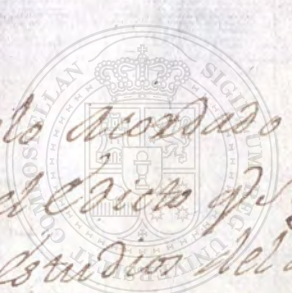 lo acordado
el edicto qe
estudios del